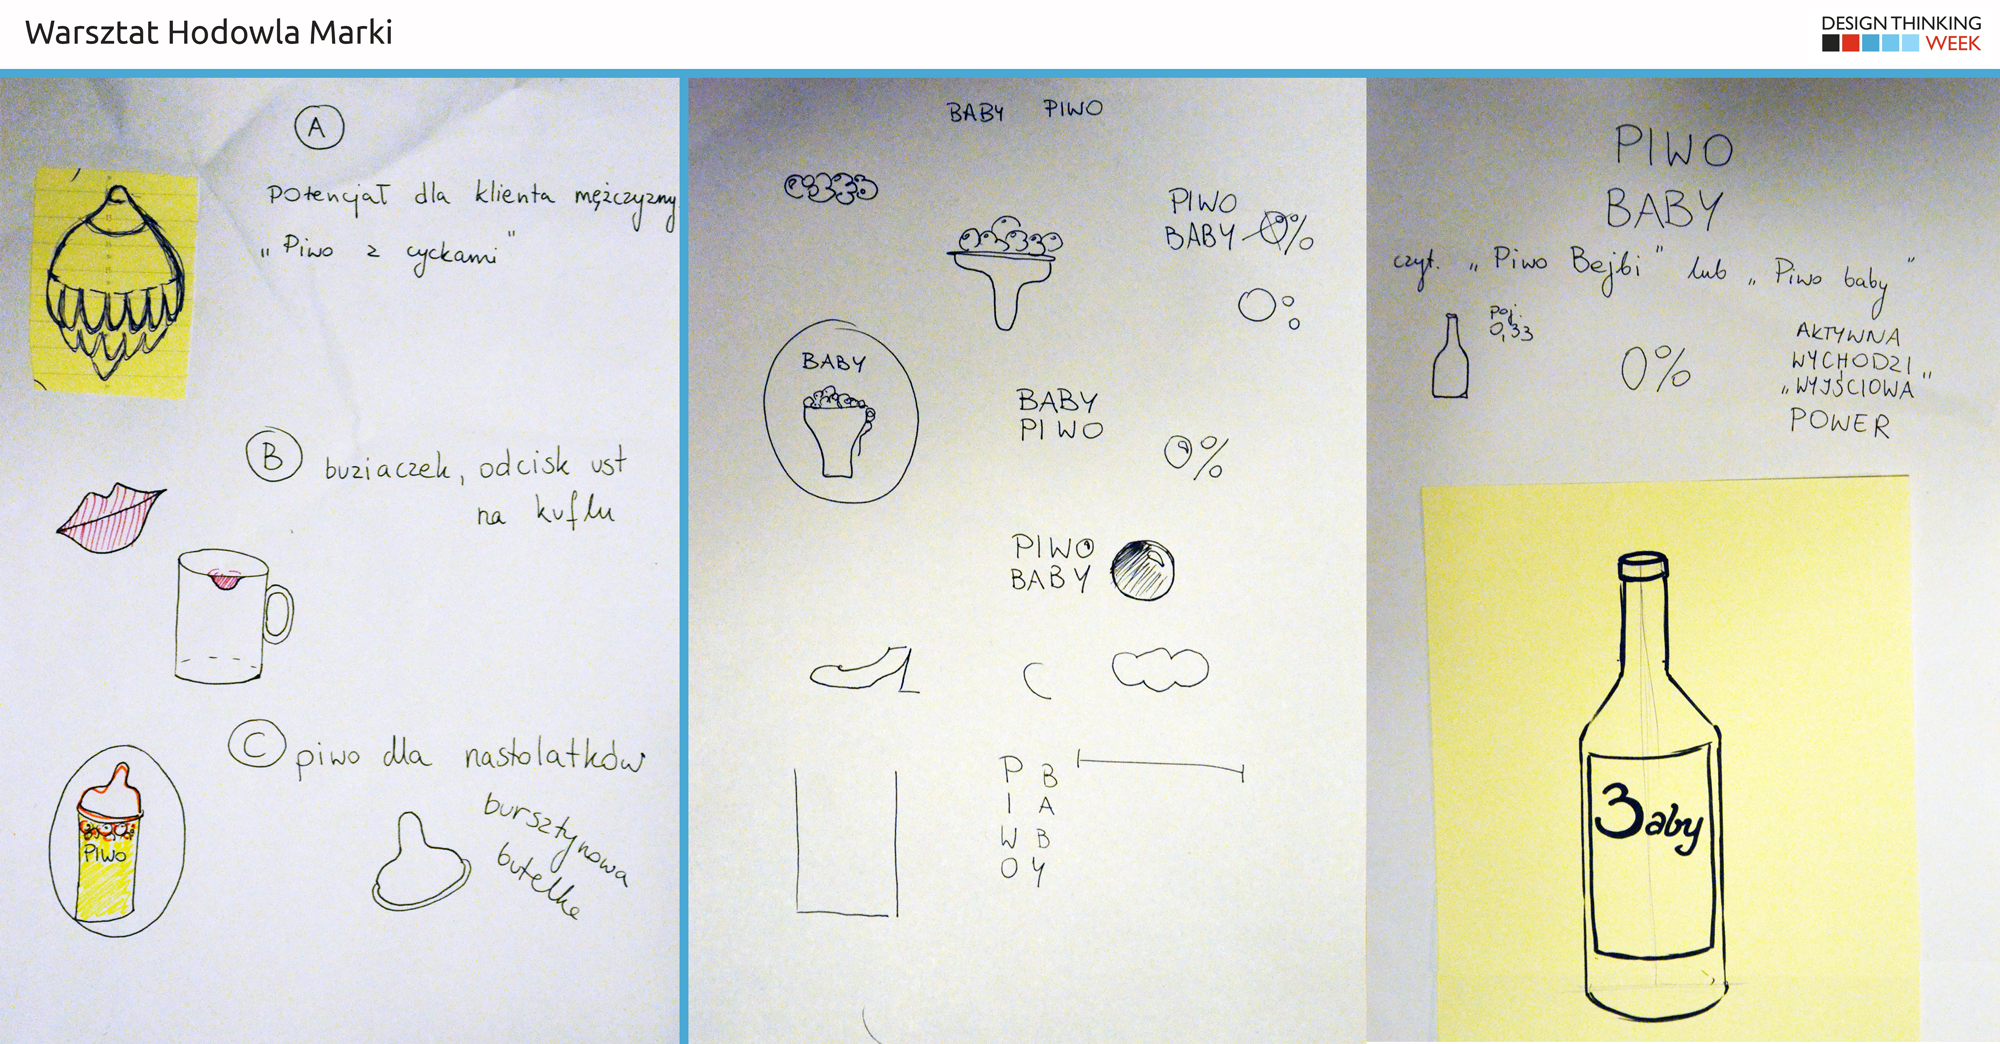 Warsztat Hodowla Marki
DESIGN THINKING
WEEK
A
potencjał dla klienta mężczyzny
„Piwo z cyckami"
B
buziaczek, odcisk ust
na kuflu
C
piwo dla nastolatków
bursztynowa
butelka
PIWO
BABY PIWO
PIWO
BABY 0%
BABY
BABY
PIWO
0%
PIWO
BABY
P B
I A
W B
O Y
PIWO
BABY
czyt. „Piwo Bejbi" lub „Piwo baby"
poj.
0,33
0%
AKTYWNA
WYCHODZI
„WYJŚCIOWA"
POWER
3aby